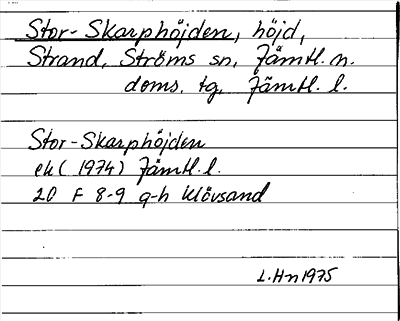 Stor-Skarphöjden, höjd,
Strand, Ströms sn, Jämtl. n.
doms. tg, Jämtl. l.
Stor-Skarphöjden
ek (1974) Jämtl. l.
20 F 8-9 g-h Klövsand
L.Hn 1975